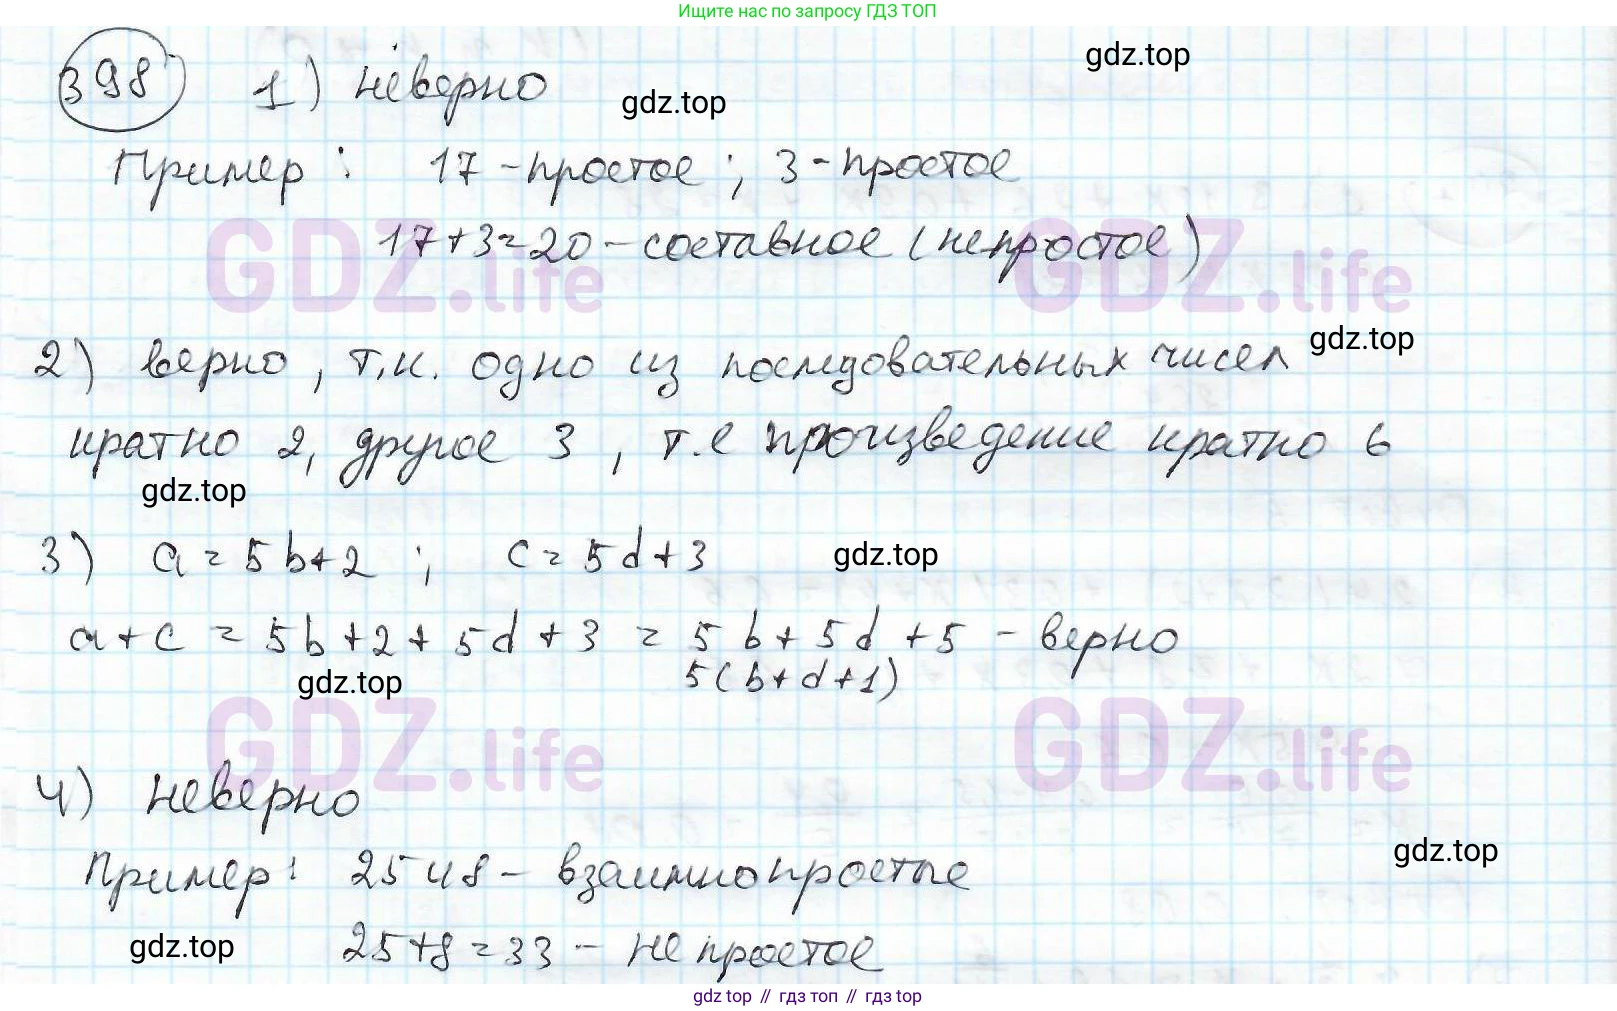 Ищите нас по запросу ГДЗ ТОП
gdz.top
398 1) неверно
gdz.top
Пример: 17 - простое; 3 - простое
17+3=20 - составное (непростое)
GDZ.life GDZ.life
gdz.top
2) верно, т.к. одно из последовательных чисел
кратно 2, другое 3, т.е произведение кратно 6
gdz.top
3) a = 5b+2; c = 5d+3
gdz.top
a+c = 5b+2+5d+3 = 5b+5d+5 - верно
5(b+d+1)
gdz.top gdz.top
GDZ.life GDZ.life
4) неверно
gdz.top
Пример: 25 и 8 - взаимно простые
gdz.top
25+8=33 - не простое
gdz top // гдз топ // гдз top